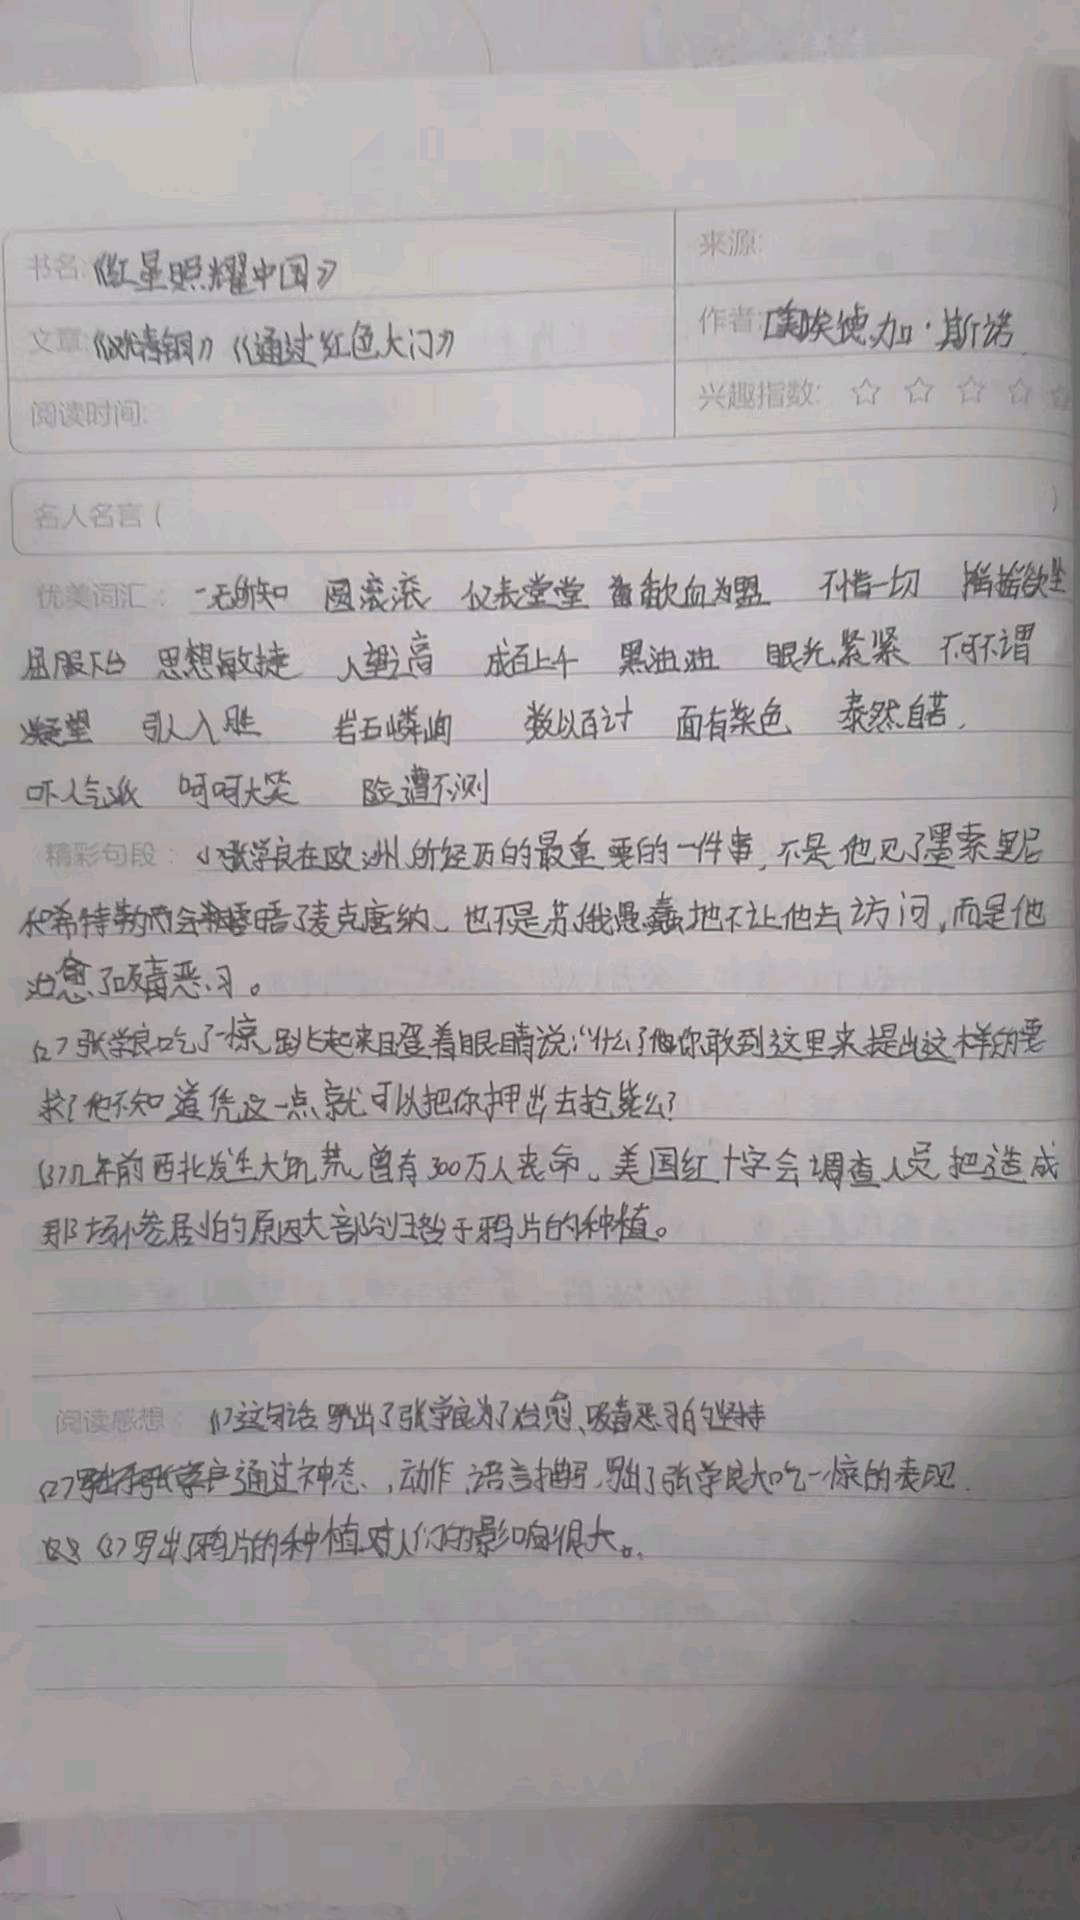 书名:《红星照耀中国》 来源:
文章:《汉代青铜》《通过红色大门》 作者:[美]埃德加·斯诺
阅读时间: 兴趣指数: ☆ ☆ ☆ ☆ ☆
名人名言( )
优美词汇: 一无所知 圆滚滚 仪表堂堂 歃血为盟 不惜一切 摇摇欲坠
屈服下台 思想敏捷 人望之高 成百上千 黑油油 眼光紧紧 不可不谓
凝望 引人入胜 岩石嶙峋 数以百计 面有菜色 泰然自若.
吓人气派 呵呵大笑 险遭不测
精彩句段: (1)张学良在欧洲所经历的最重要的一件事,不是他见了墨索里尼
和希特勒而会晤了麦克唐纳、也不是苏俄愚蠢地不让他去访问,而是他
治愈了吸毒恶习。
(2)张学良吃了一惊,跳起来瞪着眼睛说:“什么?你敢到这里来提出这样的要
求?他不知道凭这一点就可以把你押出去抢毙么?
(3)几年前西北发生大饥荒,曾有300万人丧命、美国红十字会调查人员把造成
那场惨剧的原因大部分归咎于鸦片的种植。
阅读感想: (1)这句话写出了张学良为了治愈、吸毒恶习的坚持
(2)通过神态、动作、语言描写,写出了张学良大吃一惊的表现.
(3)写出了鸦片的种植对人们的影响很大。